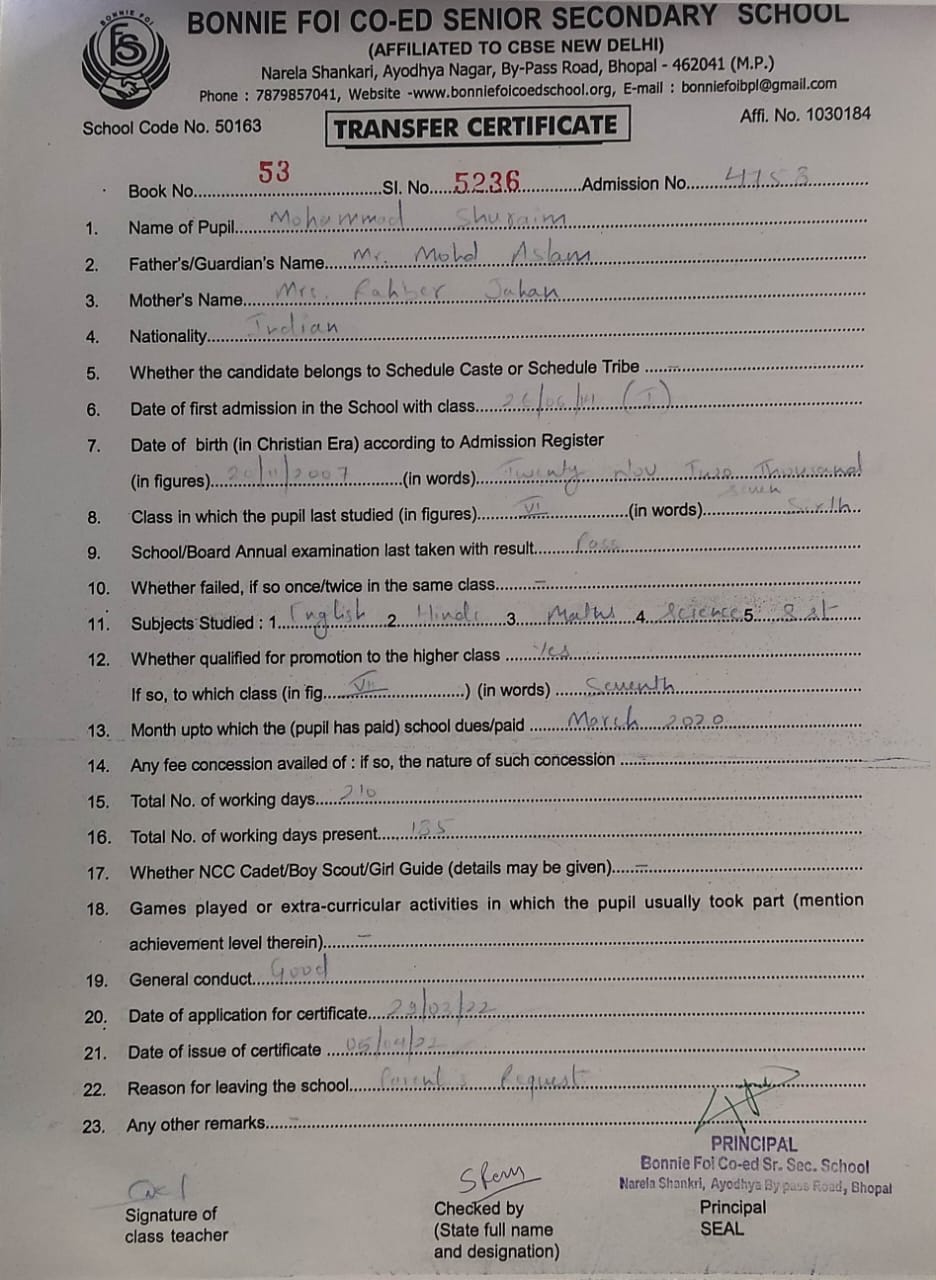 BONNIE FOI
FS
BONNIE FOI CO-ED SENIOR SECONDARY SCHOOL
(AFFILIATED TO CBSE NEW DELHI)
Narela Shankari, Ayodhya Nagar, By-Pass Road, Bhopal - 462041 (M.P.)
Phone : 7879857041, Website -www.bonniefoicoedschool.org, E-mail : bonniefoibpl@gmail.com
School Code No. 50163 TRANSFER CERTIFICATE Affi. No. 1030184
Book No. 53 Sl. No. 5236 Admission No. 4753
1. Name of Pupil Mohammad Shuraim
2. Father's/Guardian's Name Mr. Mohd Aslam
3. Mother's Name Mrs. Rahber Jahan
4. Nationality Indian
5. Whether the candidate belongs to Schedule Caste or Schedule Tribe –
6. Date of first admission in the School with class (I)
7. Date of birth (in Christian Era) according to Admission Register
(in figures) 20/11/2007 (in words) Twenty Nov Two Thousand
seven
8. Class in which the pupil last studied (in figures) VI (in words) Sixth
9. School/Board Annual examination last taken with result Pass
10. Whether failed, if so once/twice in the same class –
11. Subjects Studied : 1. English 2. Hindi 3. Maths 4. Science 5. S.st
12. Whether qualified for promotion to the higher class Yes
If so, to which class (in fig. VII ) (in words) Seventh
13. Month upto which the (pupil has paid) school dues/paid March 2020
14. Any fee concession availed of : if so, the nature of such concession –
15. Total No. of working days 210
16. Total No. of working days present 185
17. Whether NCC Cadet/Boy Scout/Girl Guide (details may be given) –
18. Games played or extra-curricular activities in which the pupil usually took part (mention
achievement level therein) –
19. General conduct Good
20. Date of application for certificate 29/03/22
21. Date of issue of certificate 05/04/22
22. Reason for leaving the school Parent's Request
23. Any other remarks –
PRINCIPAL
Bonnie Foi Co-ed Sr. Sec. School
Narela Shankri, Ayodhya By pass Road, Bhopal
Signature of Checked by Principal
class teacher (State full name SEAL
and designation)